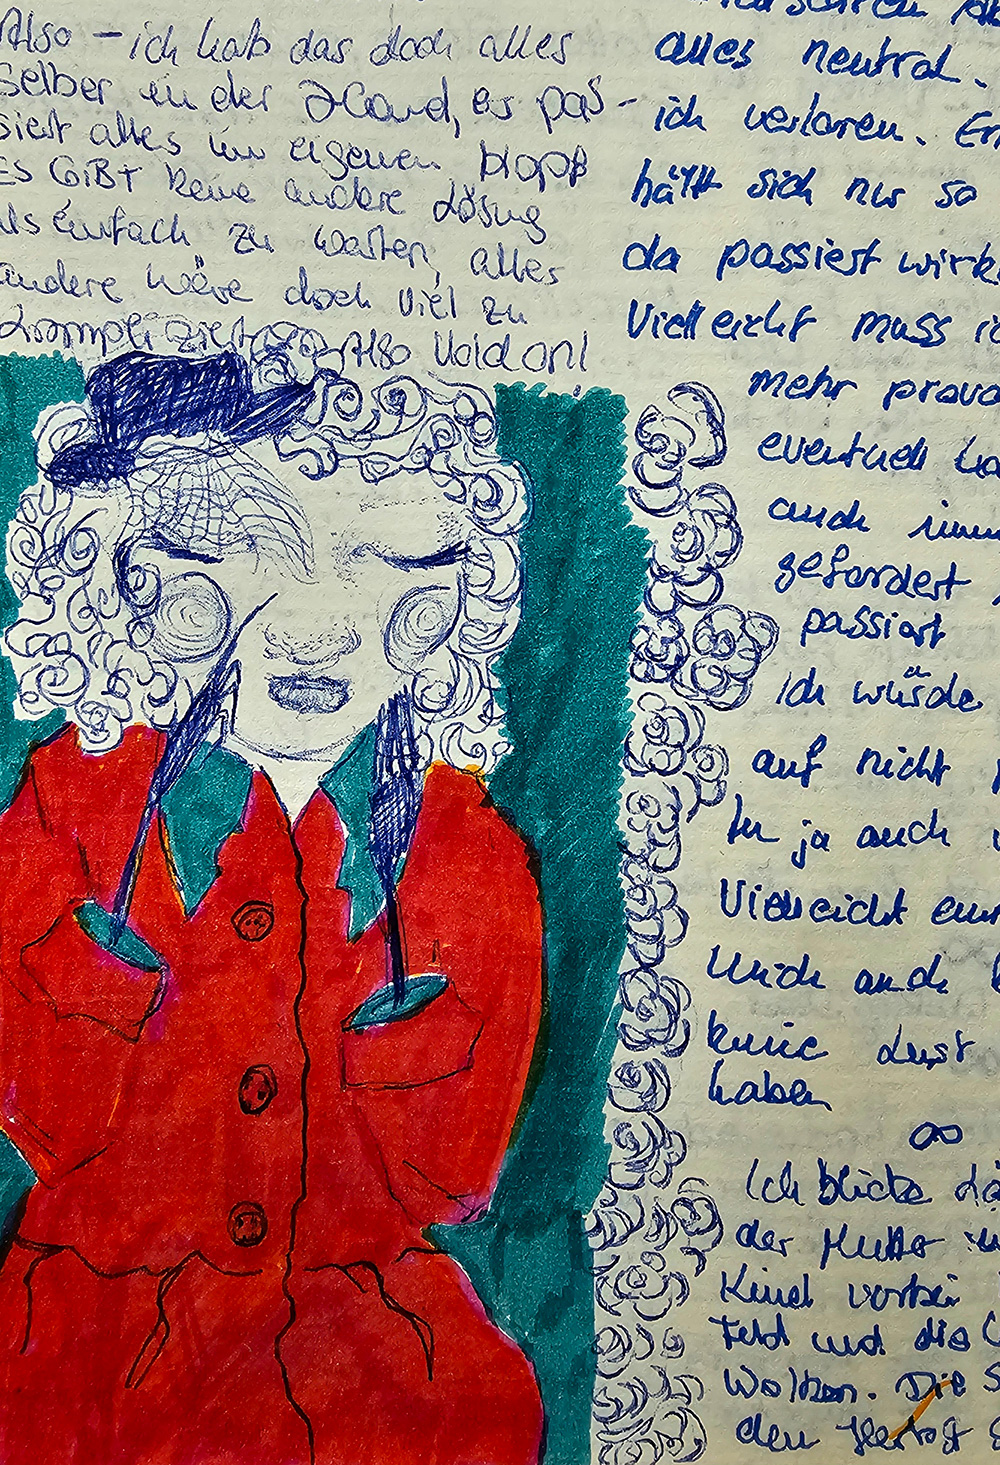 Also – ich hab das doch alles
selber in der Hand, es pas-
siert alles im eigenen Kopf
ES GiBT keine andere Lösung
als einfach zu warten, alles
andere wäre doch viel zu
kompliziert Also Hold on!
alles neutral.
ich verloren. Er
hält sich nur so
da passiert wirk
Vielleicht muss ic
mehr provo
eventuell ha
auch imm
gefordert
passiert
ich würde
auf nicht
tu ja auch
Vielleicht eine
mich auch
keine Lust
haben
∞
Ich blicke
der Mutter
Kind vorbei
Feld und die
Wolken. Die S
den